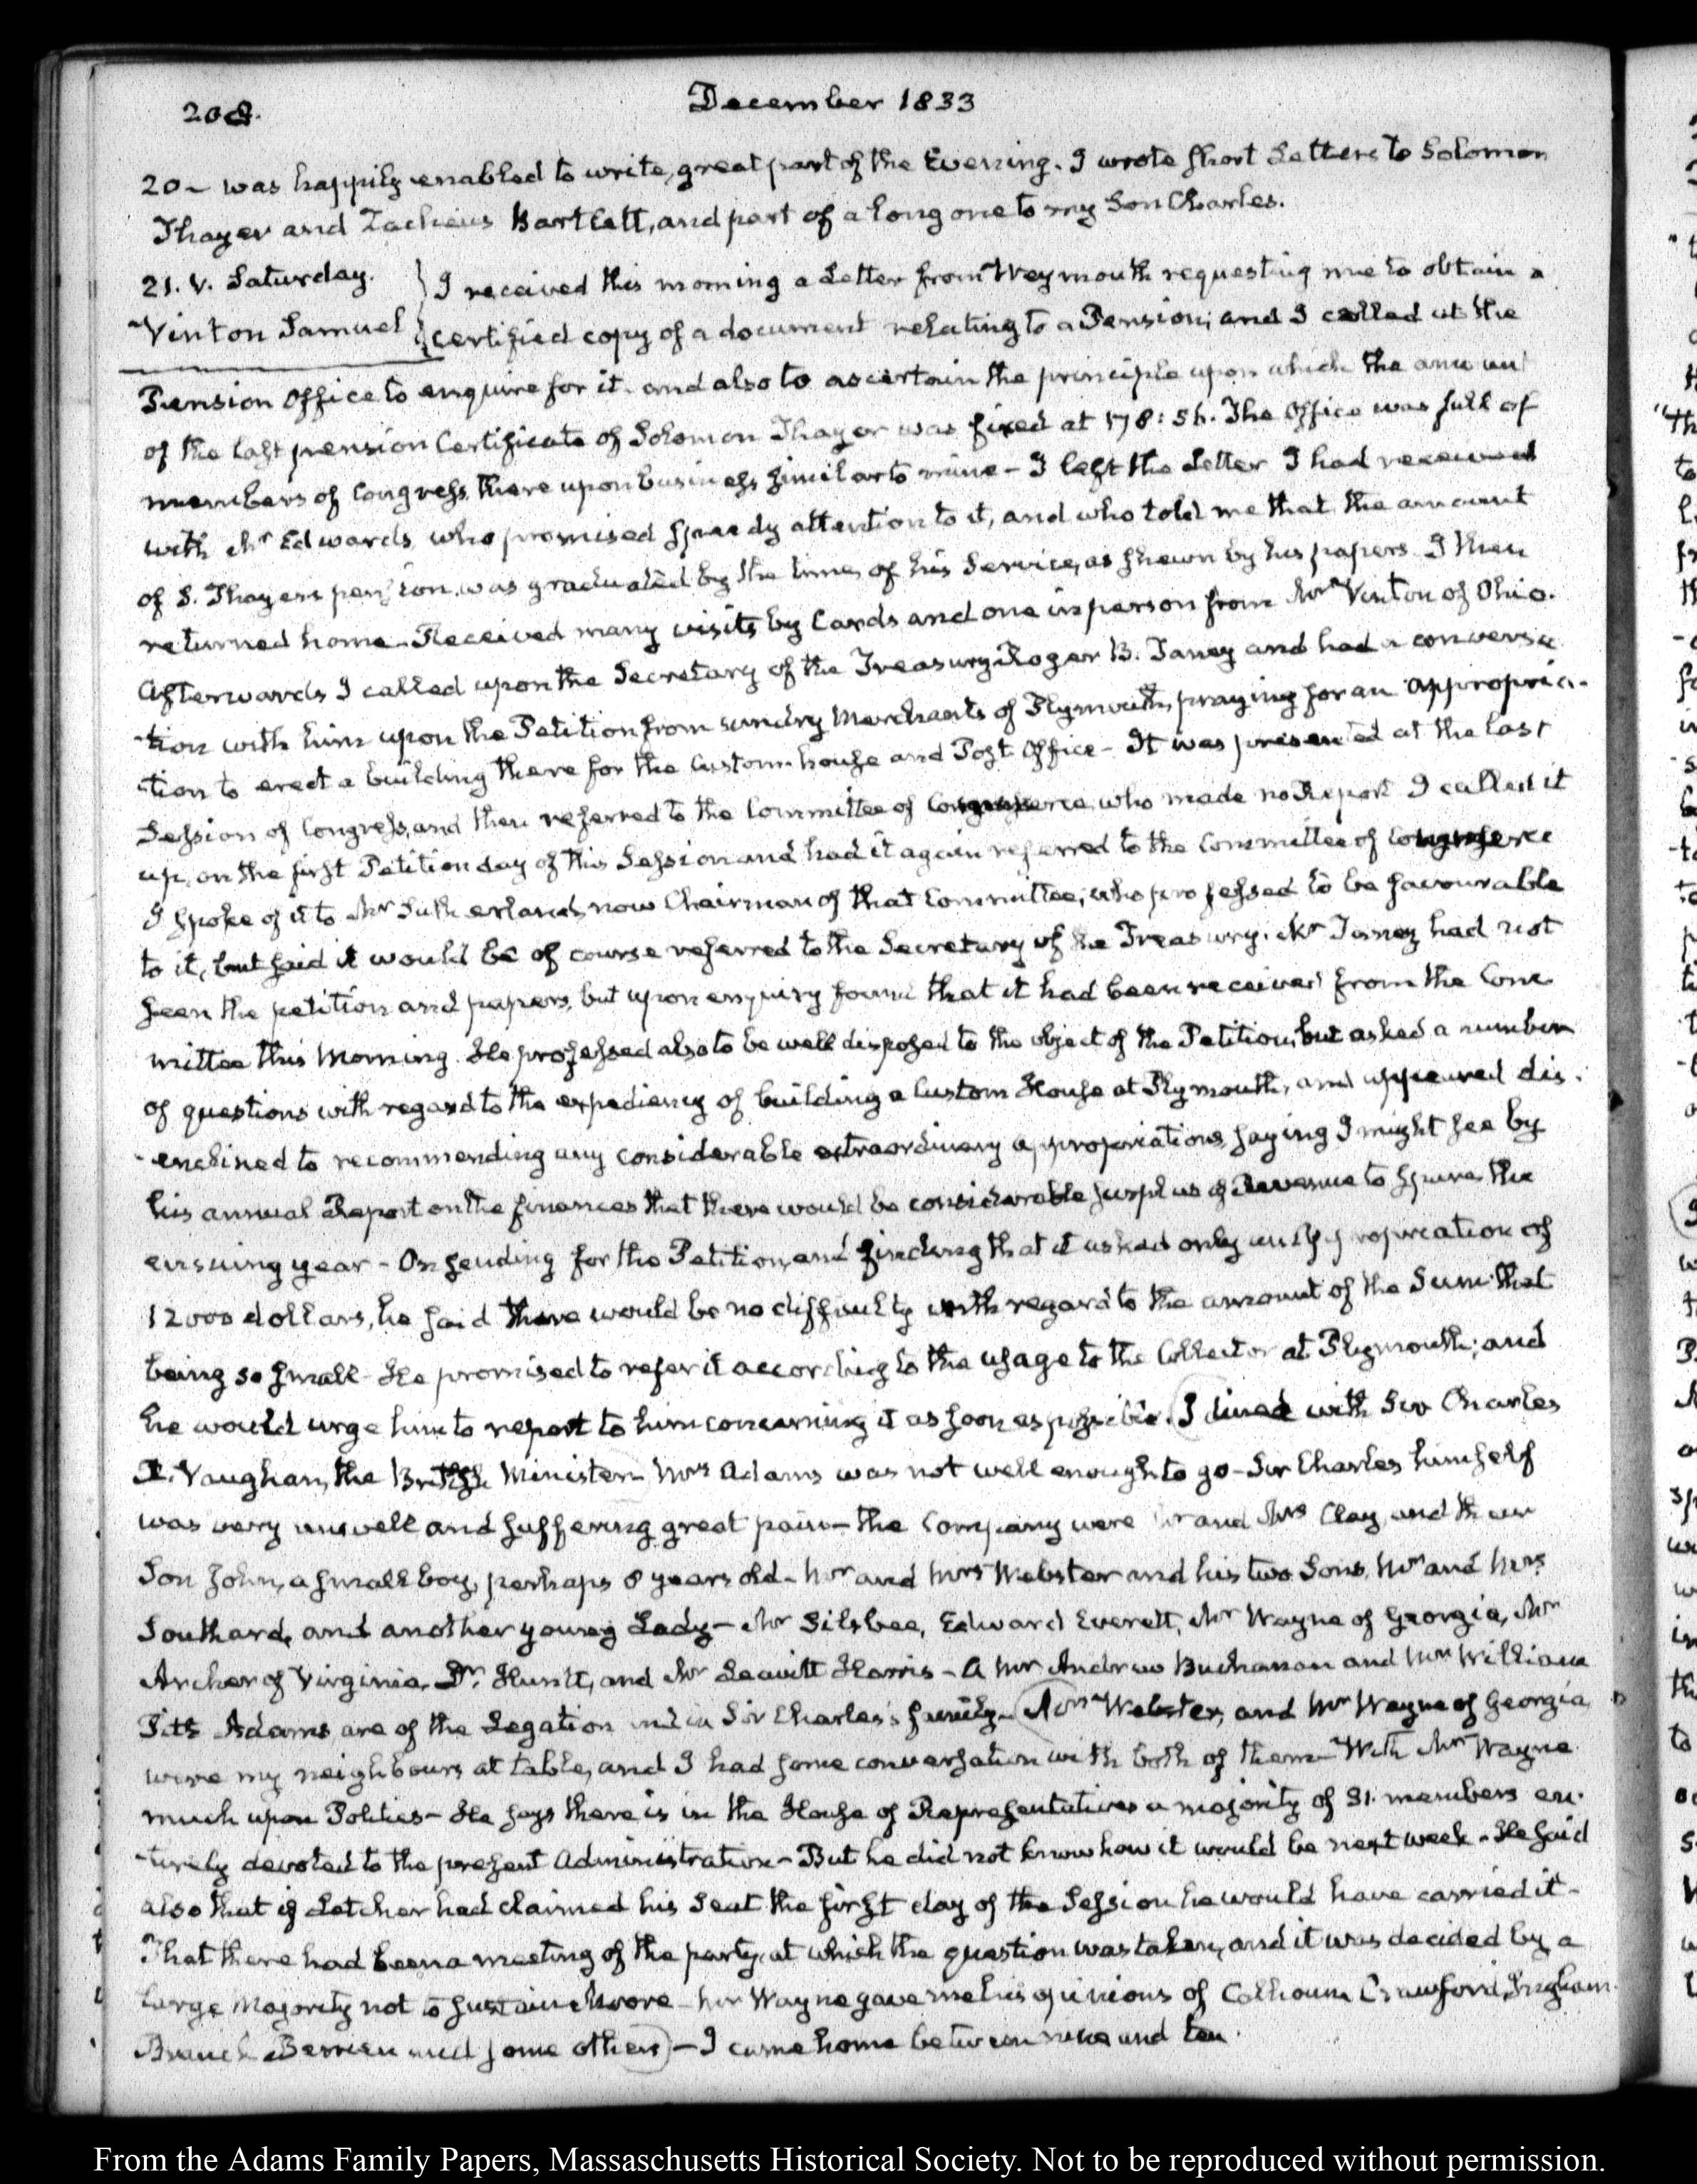 208.
December 1833
20 – was happily enabled to write, great part of the Evening. I wrote short Letters to Solomon
Thayer and Zacheus Bartlett, and part of a long one to my Son Charles.
21. V. Saturday.
Vinton Samuel
I received this morning a Letter from Weymouth requesting me to obtain a
certified copy of a document relating to a Pension; and I called at the
Pension Office to enquire for it and also to ascertain the principle upon which the amount
of the last pension Certificate of Solomon Thayer was fixed at The Office was full of
members of Congress, there upon business similar to mine – I left the Letter I had received
with Mr Edwards, who promised speedy attention to it, and who told me that the amount
of S. Thayers pension, was graduated by the time, of his Service, as shewn by his papers. I then
returned home – Received many visits by Cards and one in person from Mr Vinton of Ohio.
Afterwards I called upon the Secretary of the Treasury Roger B. Taney and had a conversa
-tion with him upon the Petition from sundry Merchants of Plymouth, praying for an appropria-
-tion to erect a building there for the Custom house and Post Office – It was presented at the last
Session of Congress, and then referred to the Committee of Commerce, who made no Report I called it
up, on the first Petition day of this Session and had it again referred to the Committee of Commerce
I spoke of it to Mr Sutherland, now Chairman of that Committee, who professed to be favourable
to it, but said it would be of course referred to the Secretary of the Treasury. Mr Taney had not
seen the petition and papers, but upon enquiry found that it had been received from the Com
mittee this Morning. He professed also to be well disposed to the object of the Petition, but asked a number
of questions with regard to the expediency of building a Custom House at Plymouth, and appeared dis-
-enclined to recommending any considerable extraordinary appropriations, saying I might see by
his annual Report on the finances that there would be considerable surplus of Revenue to spare the
ensuing year – On sending for the Petition, and finding that it asked only an appropriation of
12000 dollars, he said there would be no difficulty with regard to the amount of the Sum that
being so small – He promised to refer it according to the usage to the Collector at Plymouth; and
he would urge him to report to him concerning it as soon as possible. (I dined with Sir Charles
R. Vaughan, the British Minister – Mrs Adams was not well enough to go – Sir Charles himself
was very unwell and suffering great pain – the Company were Mr and Mrs Clay and their
Son John, a small boy, perhaps 8 years old – Mr and Mrs Webster and his two Sons, Mr and Mrs
Southard, and another young Lady – Mr Silsbee, Edward Everett, Mr Wayne of Georgia, Mr
Archer of Virginia, Dr. Huntt, and Mr Leavitt Harris – A Mr Andrew Buchanan and Mr William
Pitt Adams are of the Legation and in Sir Charles's family – (Mrs Webster, and Mr Wayne of Georgia
were my neighbours at table, and I had some conversation with both of them – With Mr Wayne
much upon Politics – He says there is in the House of Representatives a majority of 31 members en-
-tirely devoted to the present Administration – But he did not know how it would be next week – He said
also that if Letcher had claimed his Seat the first day of the Session he would have carried it –
That there had been a meeting of the party, at which the question was taken, and it was decided by a
large Majority not to sustain Moore – Mr Wayne gave me his opinions of Calhoun, Crawford, Ingham
Branch Berrien and some others) – I came home between nine and ten.
From the Adams Family Papers, Massachusetts Historical Society. Not to be reproduced without permission.